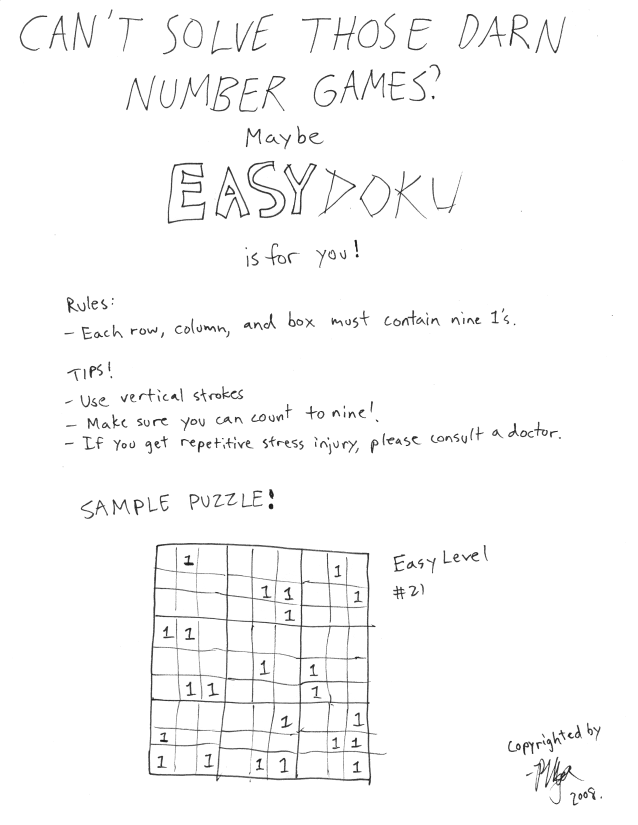 CAN'T SOLVE THOSE DARN
NUMBER GAMES?
Maybe
EASYDOKU
is for you!
Rules:
- Each row, column, and box must contain nine 1's.
TIPS!
- Use vertical strokes
- Make sure you can count to nine!
- If you get repetitive stress injury, please consult a doctor.
SAMPLE PUZZLE!
Easy Level
#21
1 1
1 1 1
1
1 1
1 1
1 1 1
1 1
1 1 1
1 1 1 1 1
Copyrighted by
2008.